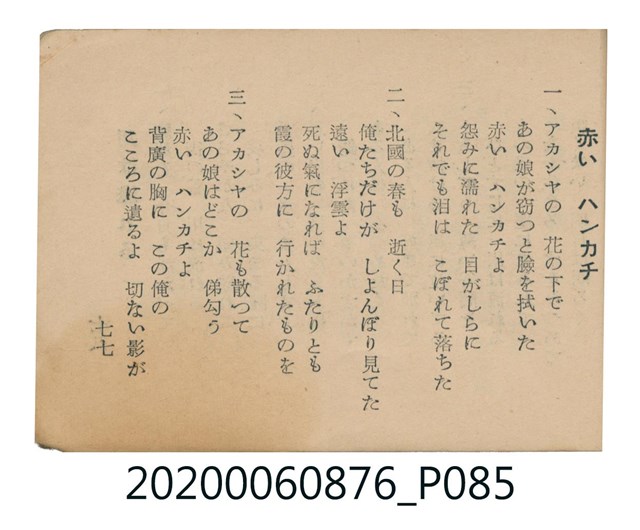 赤い ハンカチ
一、アカシヤの 花の下で
あの娘が窃つと臉を拭いた
赤い ハンカチよ
怨みに濡れた 目がしらに
それでも泪は こぼれて落ちた
二、北國の春も 逝く日
俺たちだけが しよんぼり見てた
遠い 浮雲よ
死ぬ氣になれば ふたりとも
霞の彼方に 行かれたものを
三、アカシヤの 花も散つて
あの娘はどこか 俤匂う
赤い ハンカチよ
背廣の胸に この俺の
こころに遺るよ 切ない影が
七七
20200060876_P085